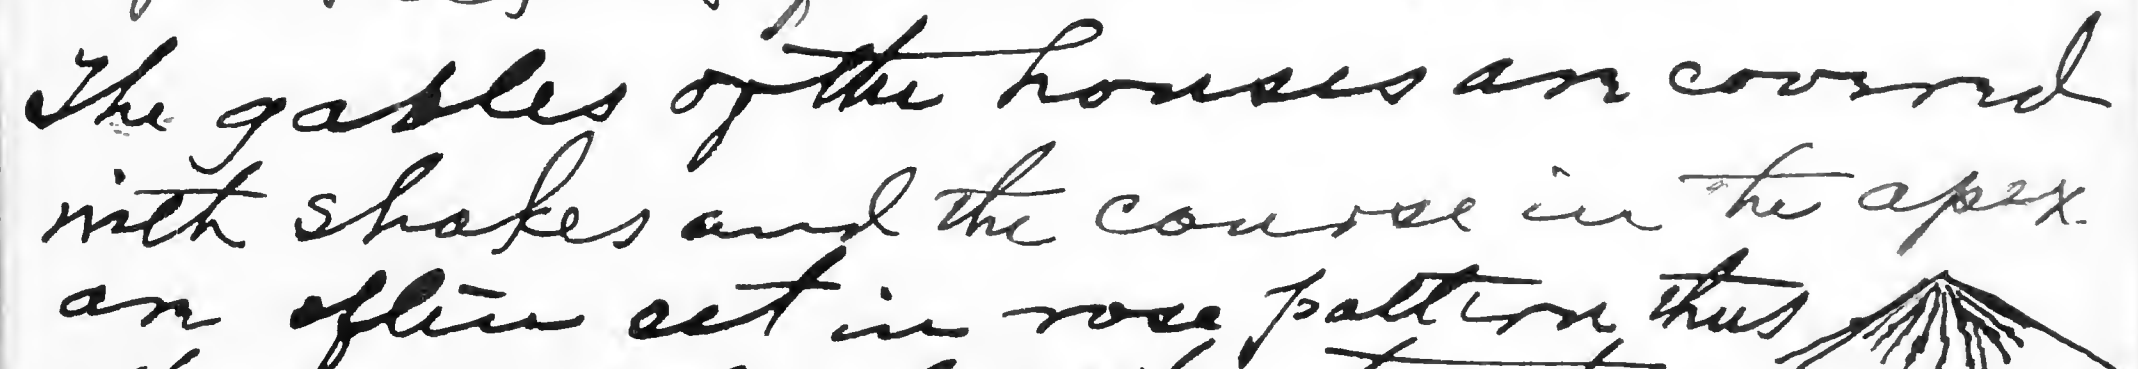 The gables of the houses are covered
with shakes and the course in the apex
are often set in rose pattern thus